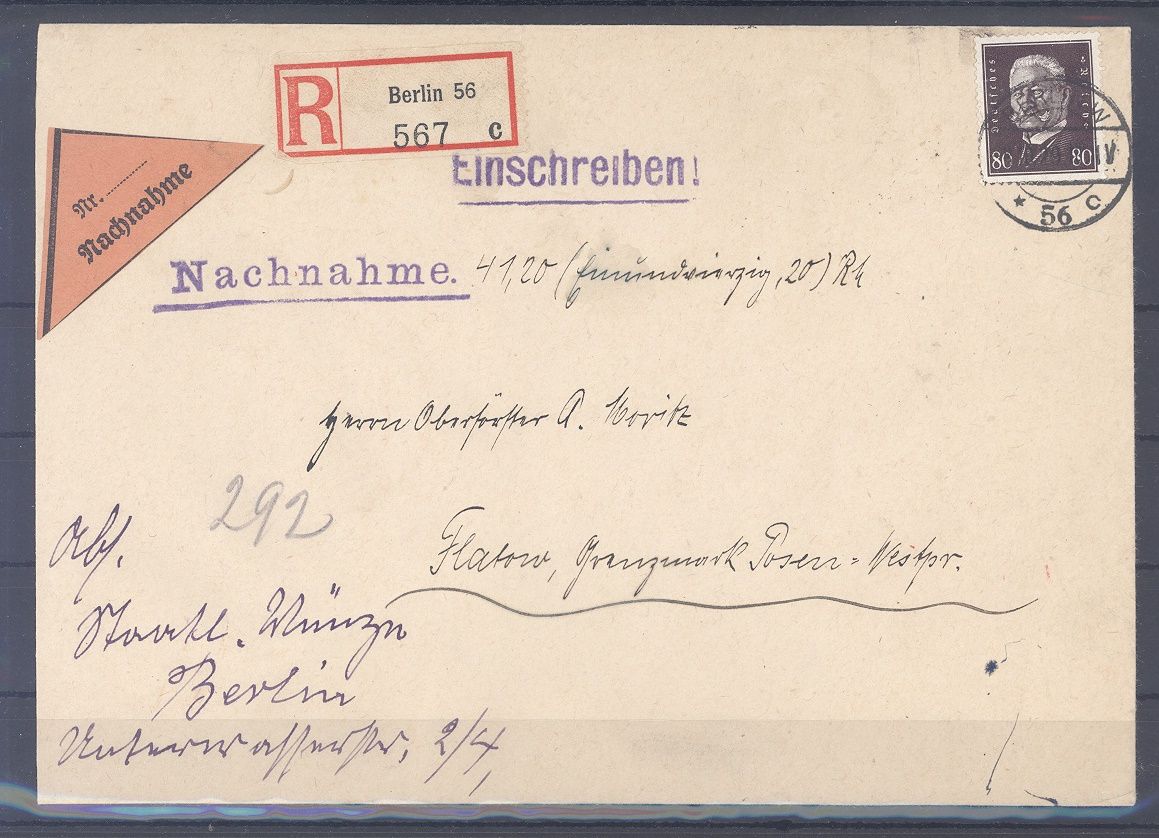 R
Berlin 56
567 c
Deutsches Reich
80 80
* 56 c
Einschreiben!
Nr. ..........
Nachnahme
Nachnahme. 41,20 (Einundvierzig, 20) RM
Herrn Oberförster A. Moritz
292
Flatow, Grenzmark Posen=Westpr.
Abs.
Staatl. Münze
Berlin
Unterwasserstr. 2/4,